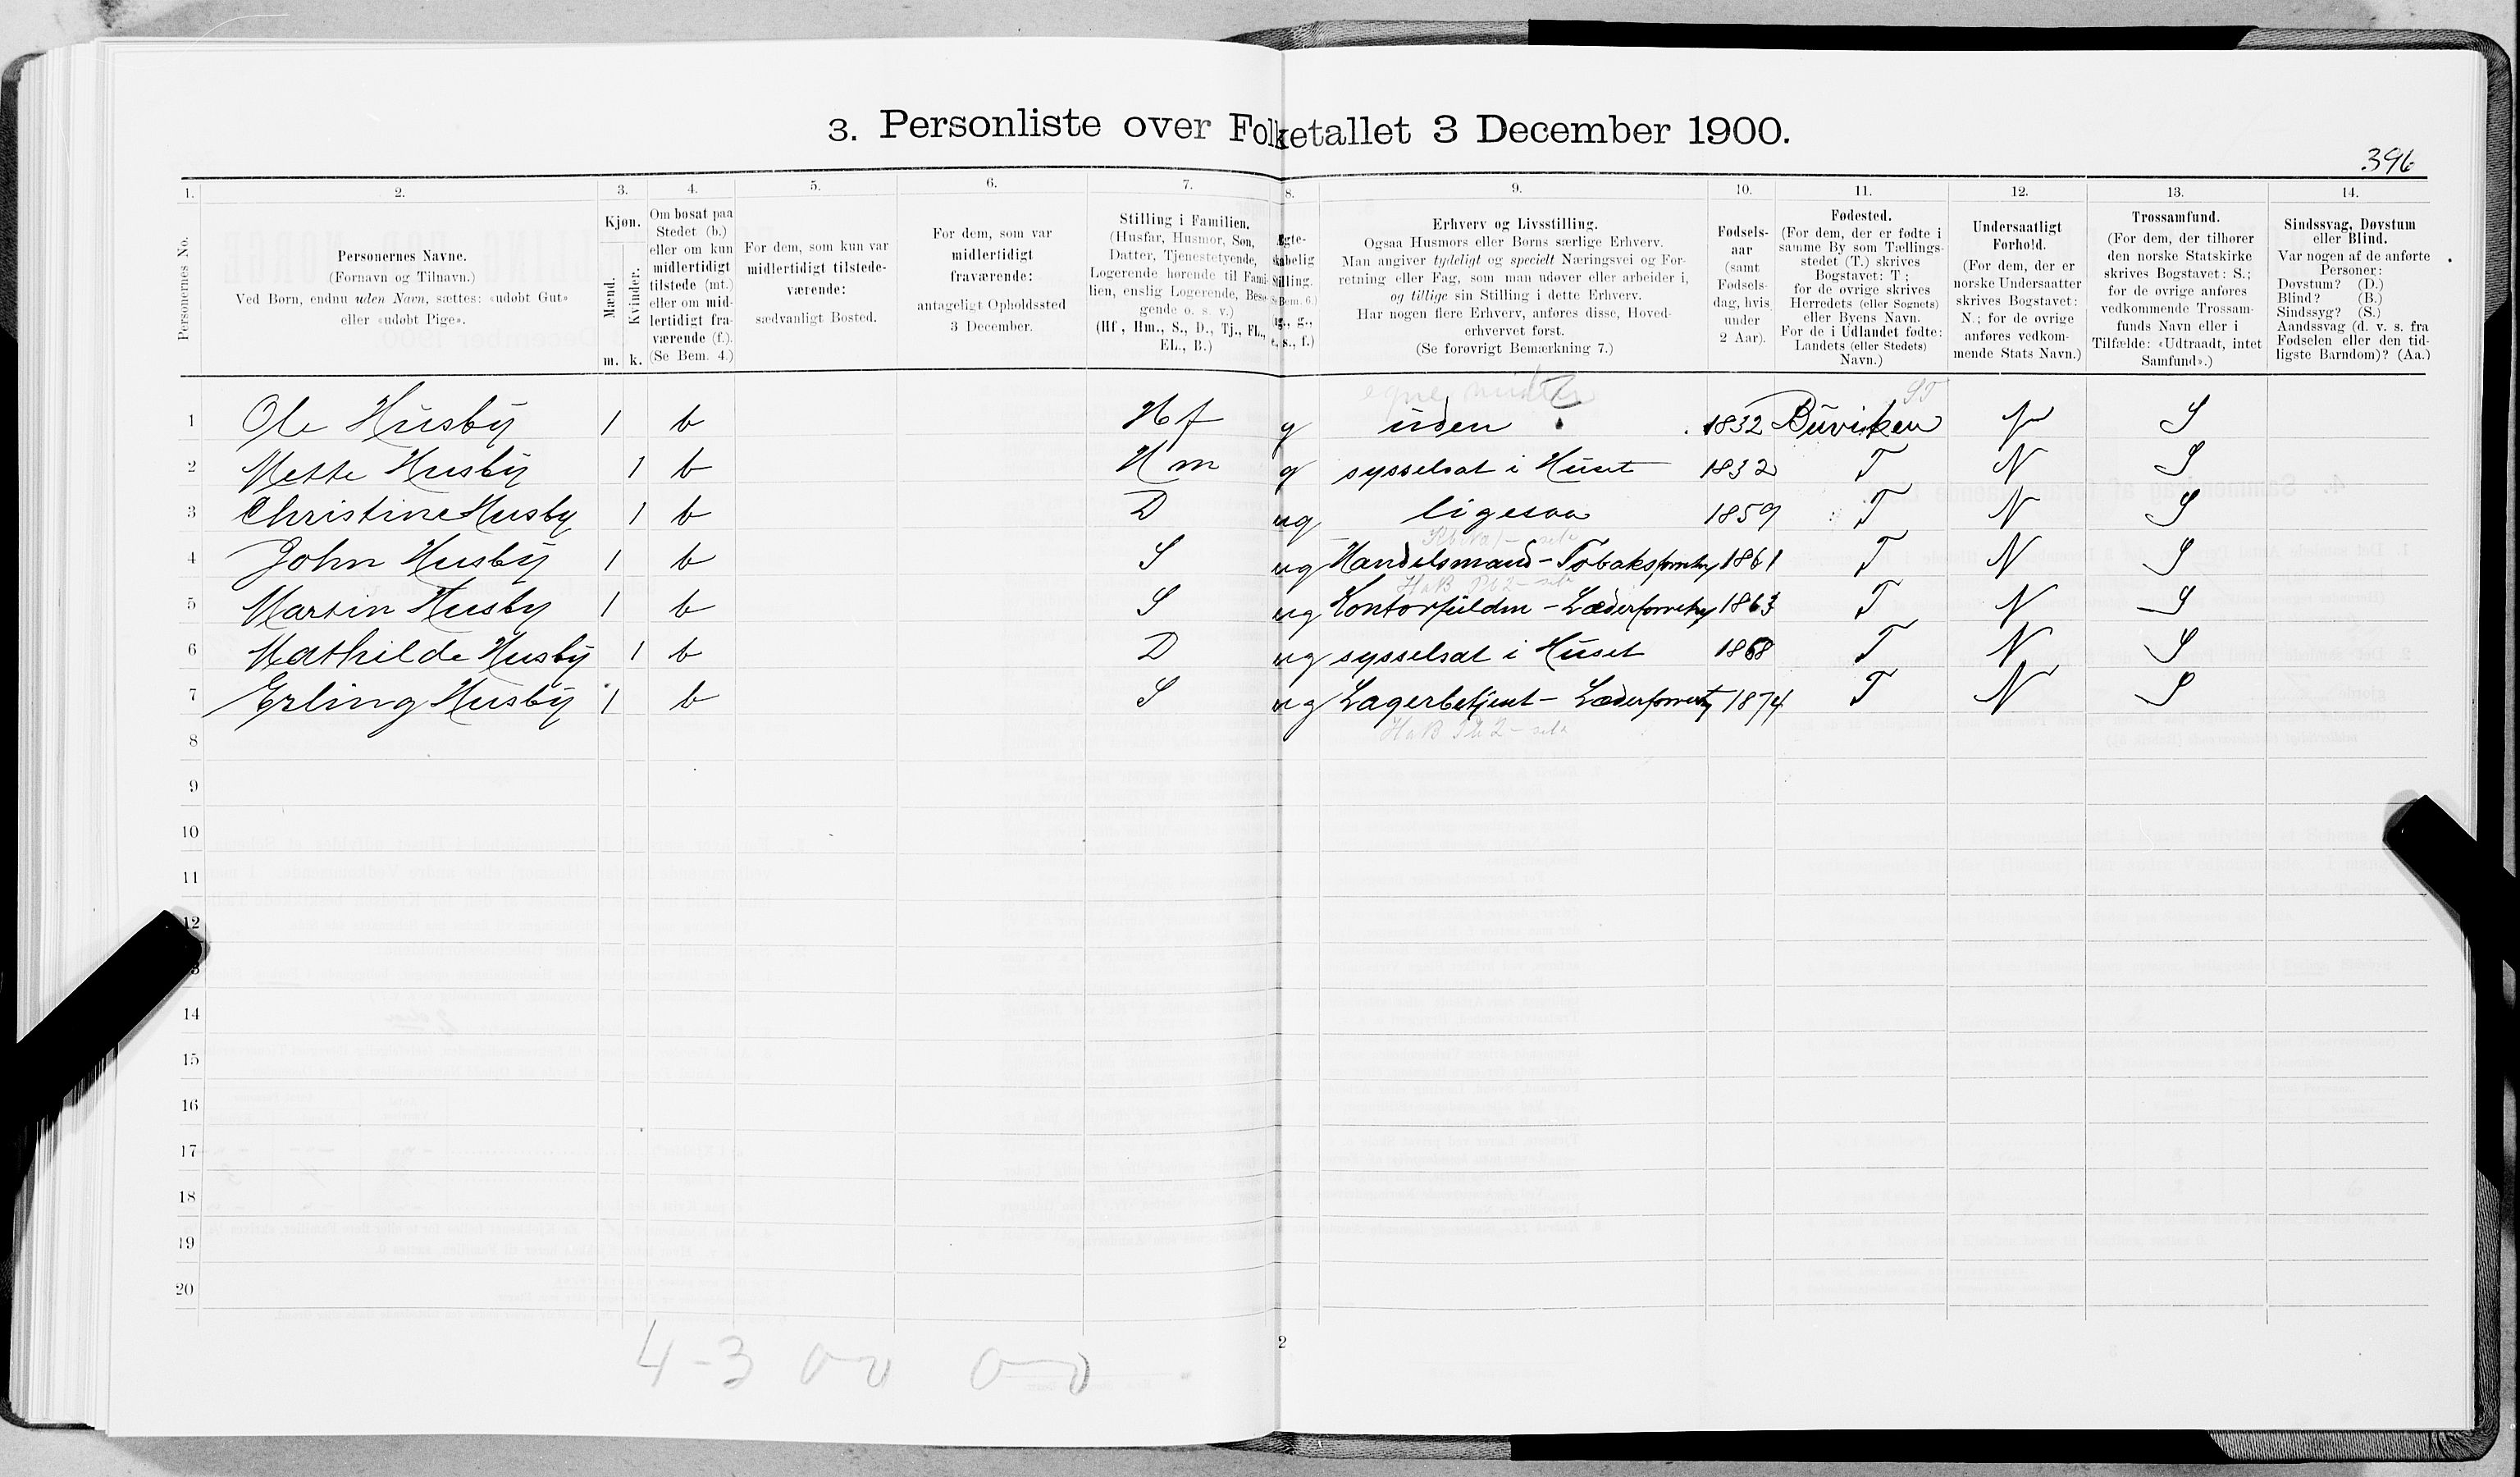 3. Personliste over Folketallet 3 December 1900.
396
1. 2. 3. 4. 5. 6. 7. 8. 9. 10. 11. 12. 13. 14.
Personernes No.
Personernes Navne.
(Fornavn og Tilnavn.)
Ved Børn, endnu uden Navn, sættes: «udøbt Gut»
eller «udøbt Pige».
Kjøn.
Mænd.
Kvinder.
m. k.
Om bosat paa
Stedet (b.)
eller om kun
midlertidigt
tilstede (mt.)
eller om mid-
lertidigt fra-
værende (f.).
(Se Bem. 4.)
For dem, som kun var
midlertidigt tilstede-
værende:
sædvanligt Bosted.
For dem, som var
midlertidigt
fraværende:
antageligt Opholdssted
3 December.
Stilling i Familien.
(Husfar, Husmor, Søn,
Datter, Tjenestetyende,
Logerende hørende til Fami-
lien, enslig Logerende, Besø-
gende o. s. v.)
(Hf., Hm., S., D., Tj., FL.,
EL., B.)
Ægte-
skabelig
Stilling.
(Se Bem. 6.)
(ug., g.,
e., s., f.)
Erhverv og Livsstilling.
Ogsaa Husmors eller Børns særlige Erhverv.
Man angiver tydeligt og specielt Næringsvei og For-
retning eller Fag, som man udøver eller arbeider i,
og tillige sin Stilling i dette Erhverv.
Har nogen flere Erhverv, anføres disse, Hoved-
erhvervet først.
(Se forøvrigt Bemærkning 7.)
Fødsels-
aar
(samt
Fødsels-
dag, hvis
under
2 Aar).
Fødested.
(For dem, der er fødte i
samme By som Tællings-
stedet (T.) skrives
Bogstavet: T ;
for de øvrige skrives
Herredets (eller Sognets)
eller Byens Navn.
For de i Udlandet fødte:
Landets (eller Stedets)
Navn.)
Undersaatligt
Forhold.
(For dem, der er
norske Undersaatter
skrives Bogstavet:
N.; for de øvrige
anføres vedkom-
mende Stats Navn.)
Trossamfund.
(For dem, der tilhører
den norske Statskirke
skrives Bogstavet: S.;
for de øvrige anføres
vedkommende Trossam-
funds Navn eller i
Tilfælde: «Udtraadt, intet
Samfund».)
Sindssvag, Døvstum
eller Blind.
Var nogen af de anførte
Personer:
Døvstum? (D.)
Blind? (B.)
Sindssyg? (S.)
Aandssvag (d. v. s. fra
Fødselen eller den tid-
ligste Barndom)? (Aa.)
egne midler ST
1 Ole Husby 1 b Hf g uden 1832 Buviken N S
2 Mette Husby 1 b Hm g sysselsat i Huset 1832 T N S
3 Christine Husby 1 b D ug ligesaa 1859 T N S
4 John Husby 1 b S ug Handelsmand - Tobaksforretng 1861 T N S
5 Martin Husby 1 b S ug Kontorfuldm - Læderforretng 1863 T N S
6 Mathilde Husby 1 b D ug sysselsat i Huset 1868 T N S
7 Erling Husby 1 b S ug Lagerbetjent - Læderforretng 1874 T N S
8
9
10
11
12
14
15
16
17
18
19
20
2
4-3 0-0 0-0